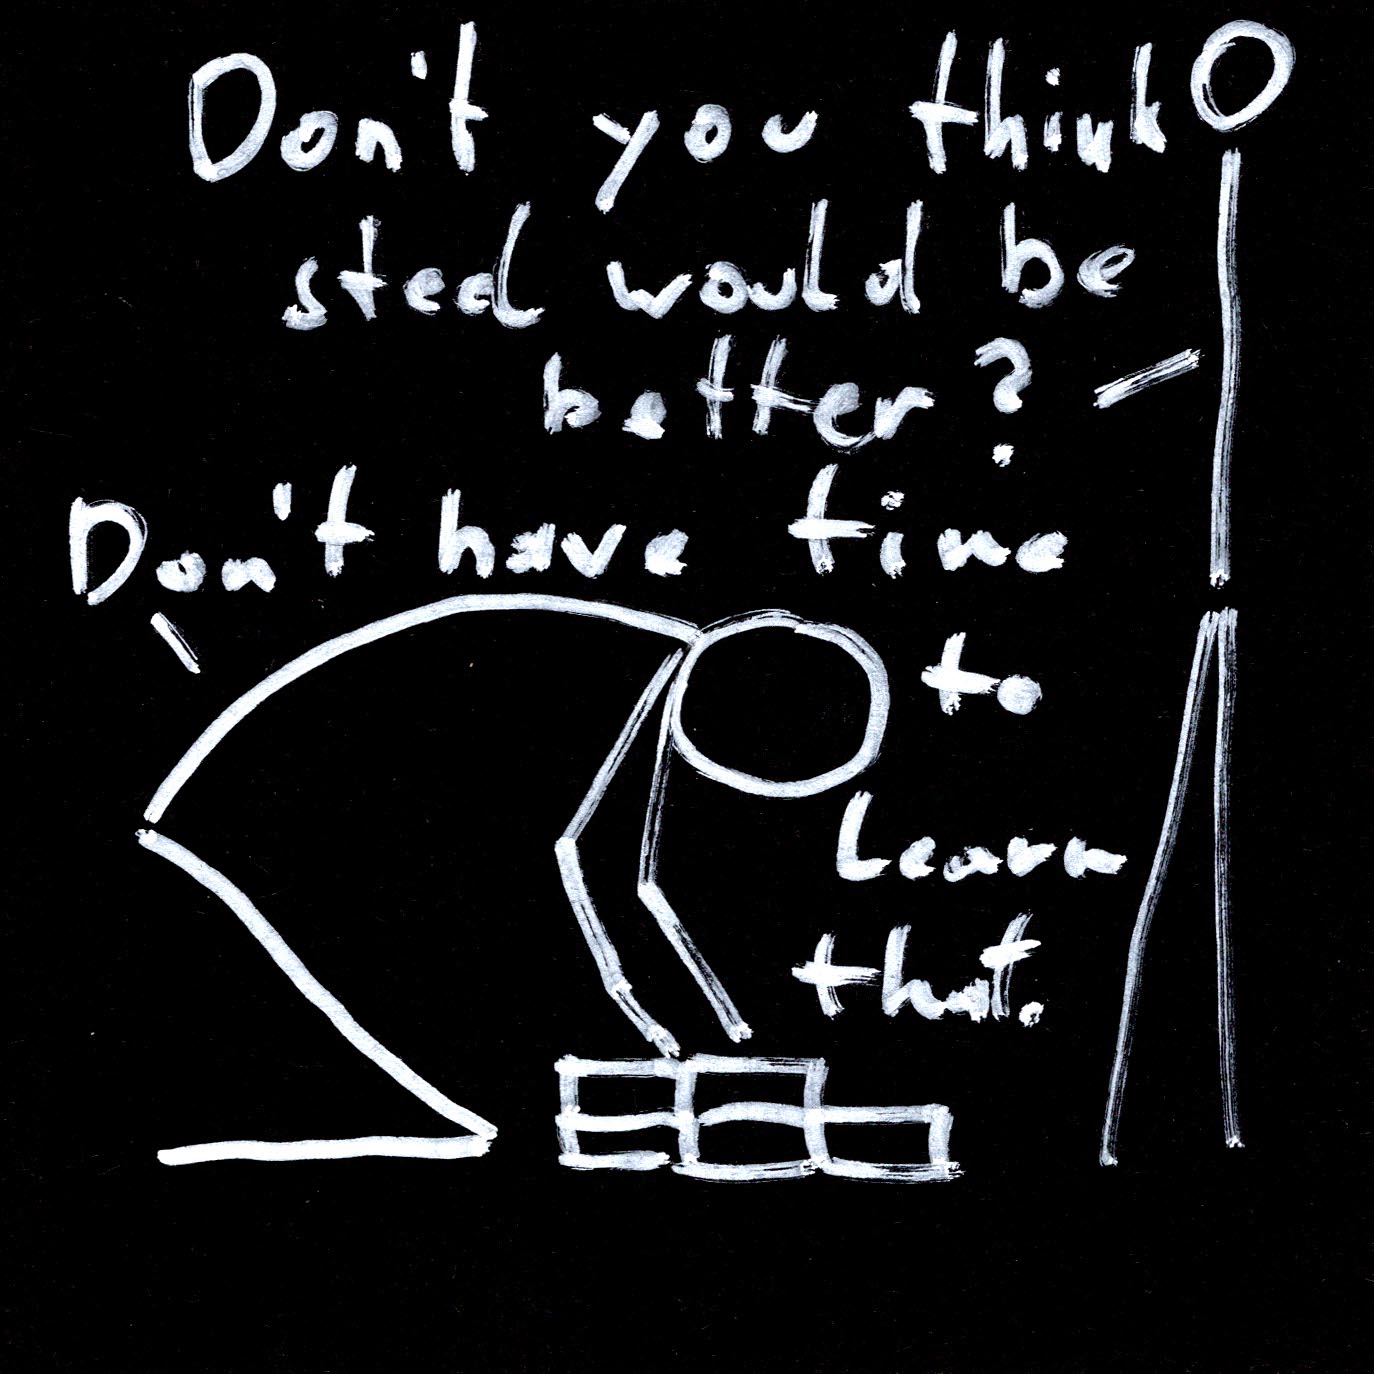 Don't you think
steel would be
better?
Don't have time
to
Learn
that.